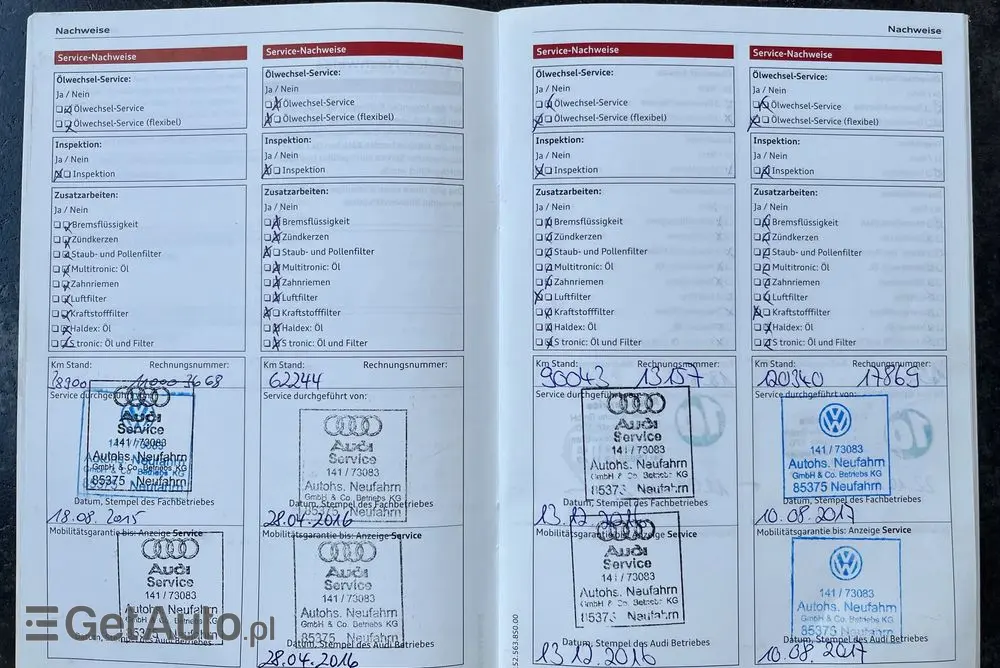 Nachweise
Service-Nachweise
Ölwechsel-Service:
Ja / Nein
Ölwechsel-Service
Ölwechsel-Service (flexibel)
Inspektion:
Ja / Nein
Inspektion
Zusatzarbeiten:
Ja / Nein
Bremsflüssigkeit
Zündkerzen
Staub- und Pollenfilter
Multitronic: Öl
Zahnriemen
Luftfilter
Kraftstofffilter
Haldex: Öl
S tronic: Öl und Filter
Km Stand: Rechnungsnummer:
Service durchgeführt von:
Audi
Service
141/73083
Autohs. Neufahrn
GmbH & Co. Betriebs KG
85375 Neufahrn
Datum, Stempel des Fachbetriebes
18.08.2015
Mobilitätsgarantie bis: Anzeige Service
Audi
Service
141/73083
Autohs. Neufahrn
Service-Nachweise
Ölwechsel-Service:
Ja / Nein
Ölwechsel-Service
Ölwechsel-Service (flexibel)
Inspektion:
Ja / Nein
Inspektion
Zusatzarbeiten:
Ja / Nein
Bremsflüssigkeit
Zündkerzen
Staub- und Pollenfilter
Multitronic: Öl
Zahnriemen
Luftfilter
Kraftstofffilter
Haldex: Öl
S tronic: Öl und Filter
Km Stand: Rechnungsnummer:
62244
Service durchgeführt von:
Audi
Service
141/73083
Autohs. Neufahrn
GmbH & Co. Betriebs KG
85375 Neufahrn
Datum, Stempel des Fachbetriebes
28.04.2016
Mobilitätsgarantie bis: Anzeige Service
Audi
Service
141/73083
Autohs. Neufahrn
GmbH & Co. Betriebs KG
85375 Neufahrn
Datum, Stempel des Audi Betriebes
28.04.2016
Nachweise
Service-Nachweise
Ölwechsel-Service:
Ja / Nein
Ölwechsel-Service
Ölwechsel-Service (flexibel)
Inspektion:
Ja / Nein
Inspektion
Zusatzarbeiten:
Ja / Nein
Bremsflüssigkeit
Zündkerzen
Staub- und Pollenfilter
Multitronic: Öl
Zahnriemen
Luftfilter
Kraftstofffilter
Haldex: Öl
S tronic: Öl und Filter
Km Stand: Rechnungsnummer:
90043 13157
Service durchgeführt von:
Audi
Service
141/73083
Autohs. Neufahrn
GmbH & Co. Betriebs KG
85375 Neufahrn
Datum, Stempel des Fachbetriebes
13.12.2016
Mobilitätsgarantie bis: Anzeige Service
Audi
Service
141/73083
Autohs. Neufahrn
GmbH & Co. Betriebs KG
85375 Neufahrn
Datum, Stempel des Audi Betriebes
13.12.2016
52.563.850.00
Service-Nachweise
Ölwechsel-Service:
Ja / Nein
Ölwechsel-Service
Ölwechsel-Service (flexibel)
Inspektion:
Ja / Nein
Inspektion
Zusatzarbeiten:
Ja / Nein
Bremsflüssigkeit
Zündkerzen
Staub- und Pollenfilter
Multitronic: Öl
Zahnriemen
Luftfilter
Kraftstofffilter
Haldex: Öl
S tronic: Öl und Filter
Km Stand: Rechnungsnummer:
120340 17869
Service durchgeführt von:
141/73083
Autohs. Neufahrn
GmbH & Co. Betriebs KG
85375 Neufahrn
Datum, Stempel des Fachbetriebes
10.08.2017
Mobilitätsgarantie bis: Anzeige Service
141/73083
Autohs. Neufahrn
GmbH & Co. Betriebs KG
85375 Neufahrn
Datum, Stempel des Audi Betriebes
10.08.2017
GetAuto.pl